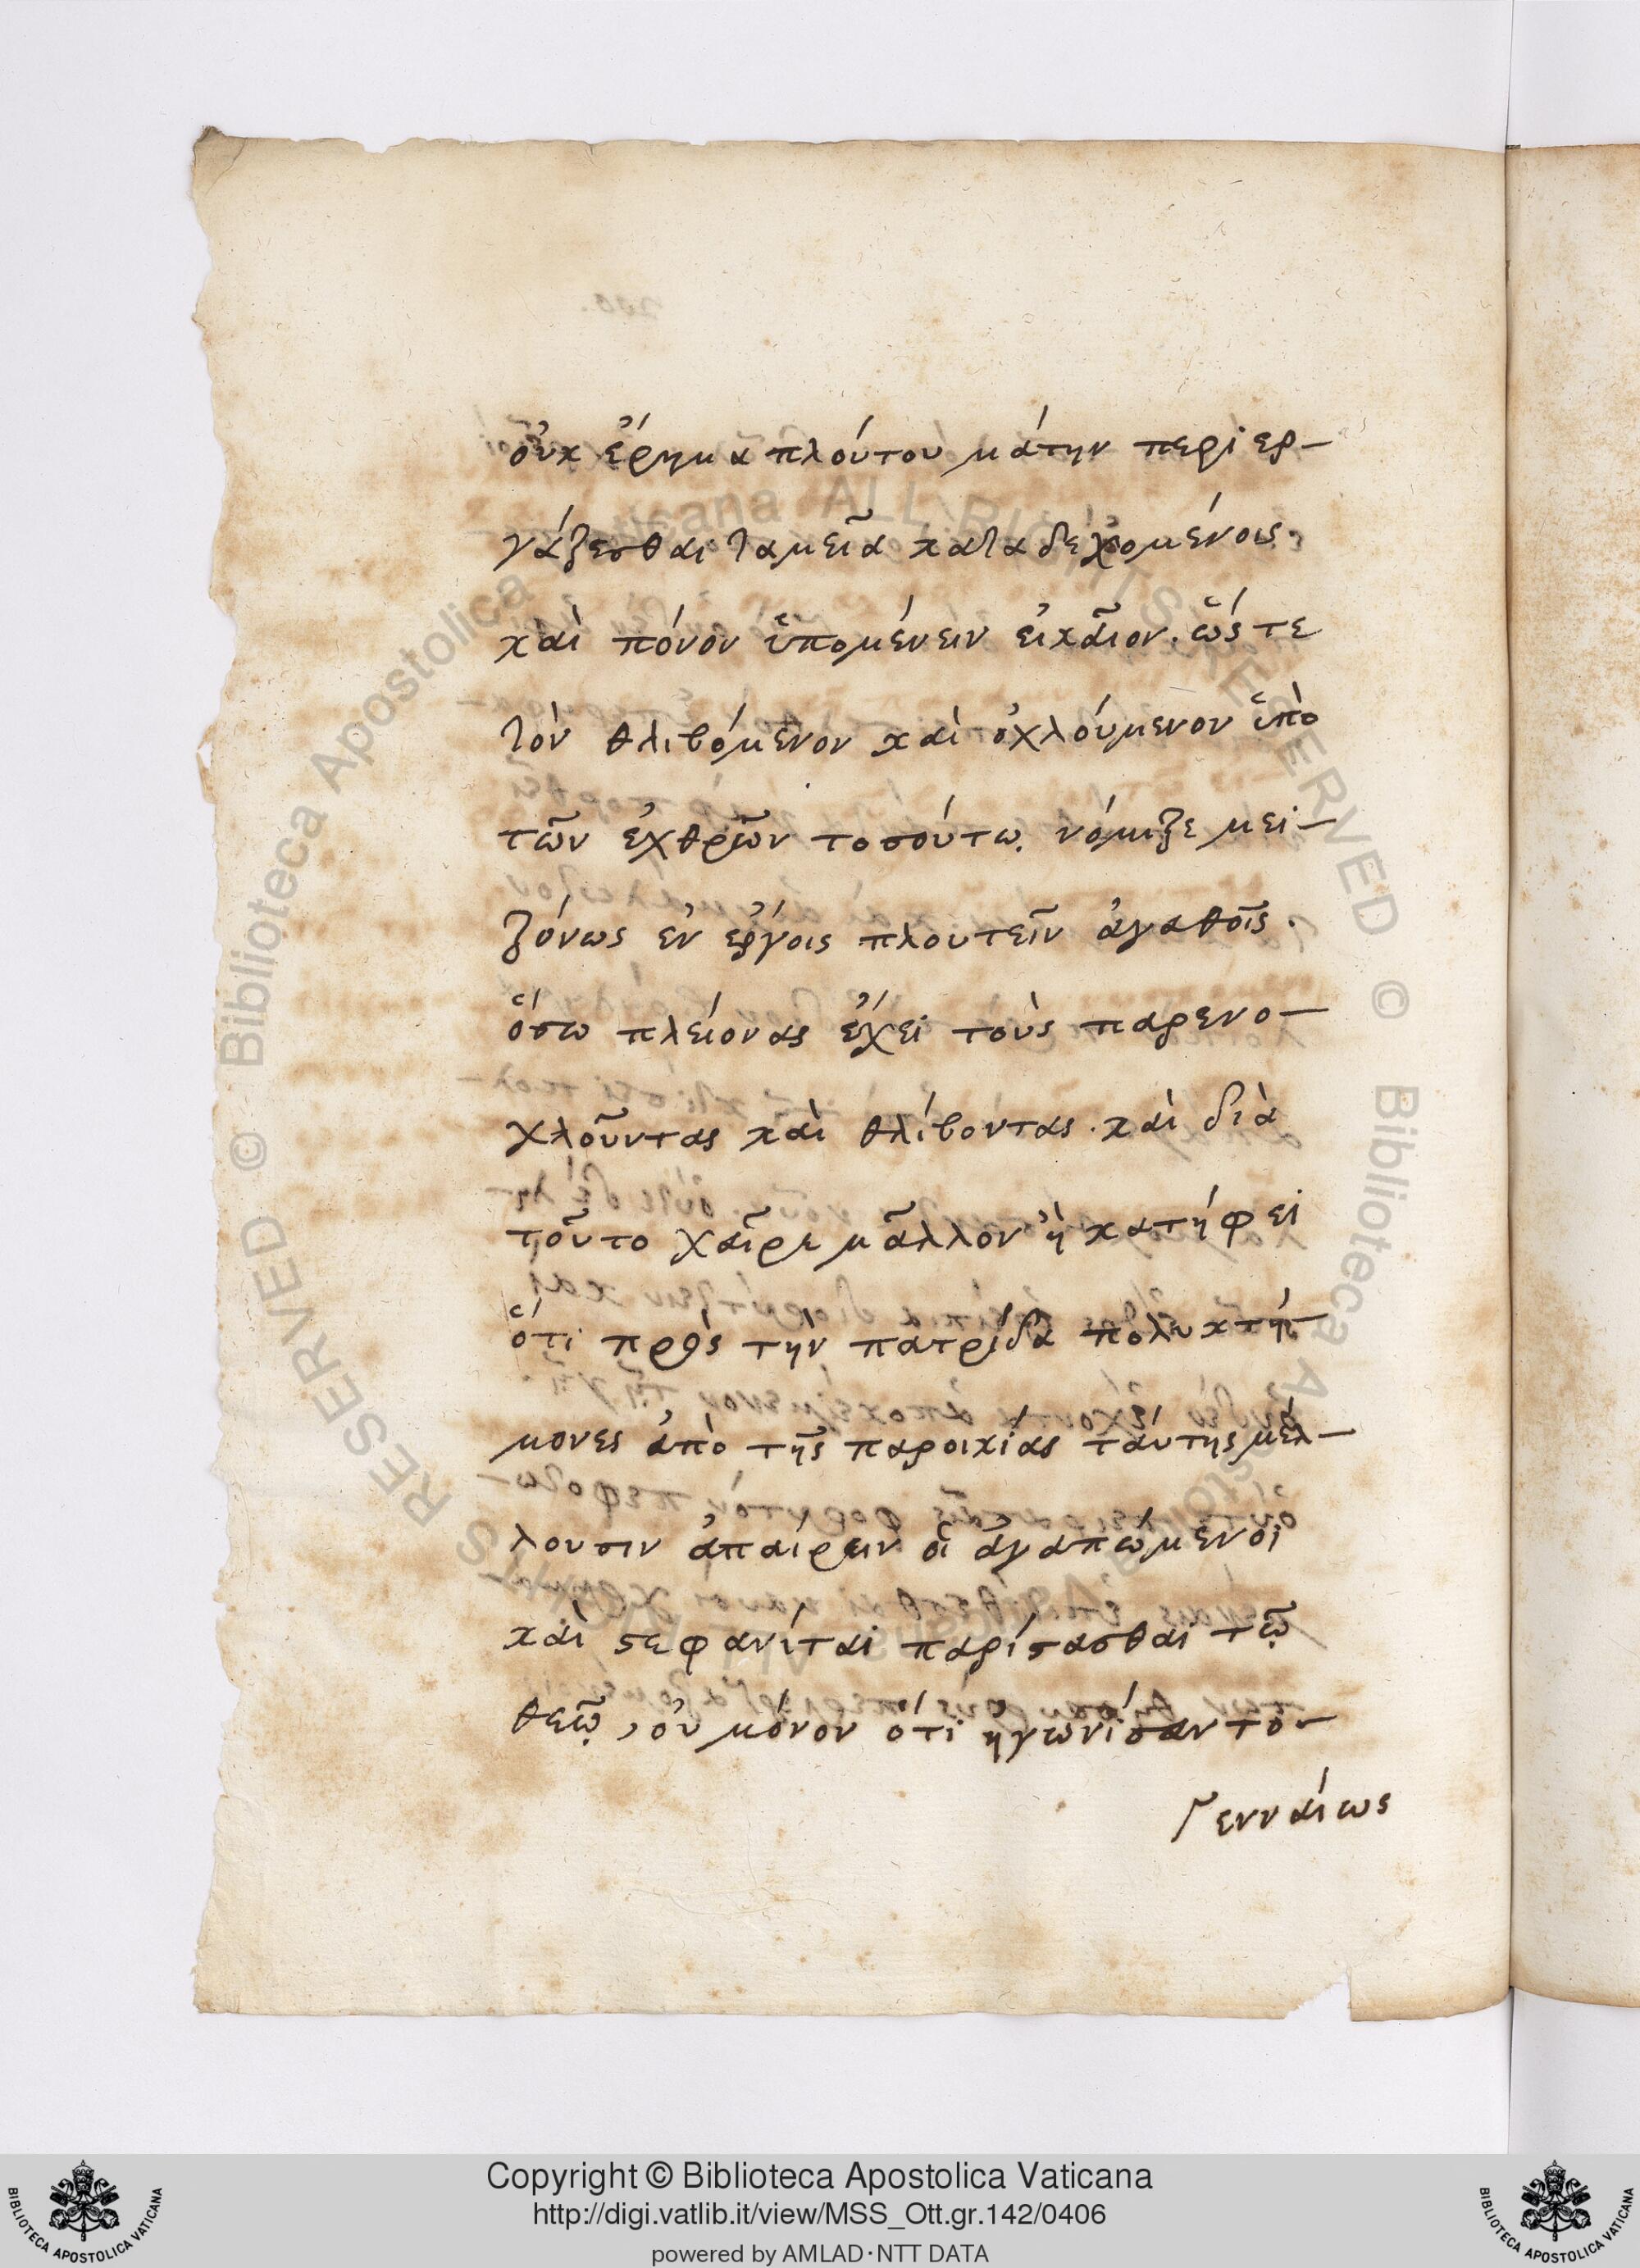 οὐκ ἔρημα πλούτου μάτην περιερ-
γάζεσθαι ταμεῖα καταδεχομένοις.
καὶ πόνον ὑπομένειν εἰκαῖον. ὥστε
τὸν θλιβόμενον καὶ ὀχλούμενον ὑπὸ
τῶν ἐχθρῶν τοσούτω. νόμιζε μει-
ζόνως ἐν ἔργοις πλουτεῖν ἀγαθοῖς.
ὅσω πλείονας ἔχει τοὺς παρενο-
χλοῦντας καὶ θλίβοντας. καὶ διὰ
τοῦτο χαῖρε μᾶλλον ἢ κατήφει
ὅτι πρὸς τὴν πατρίδα πολυκτή-
μονες ἀπὸ τῆς παροικίας ταύτης μέλ-
λουσιν ἀπαίρειν οἱ ἀγαπώμενοι
καὶ στεφανίται παρίστασθαι τῷ
θεῷ, οὐ μόνον ὅτι ἠγωνίσαντο-
γενναίως
Copyright © Biblioteca Apostolica Vaticana
http://digi.vatlib.it/view/MSS_Ott.gr.142/0406
powered by AMLAD·NTT DATA
BIBLIOTECA APOSTOLICA VATICANA
BIBLIOTECA APOSTOLICA VATICANA